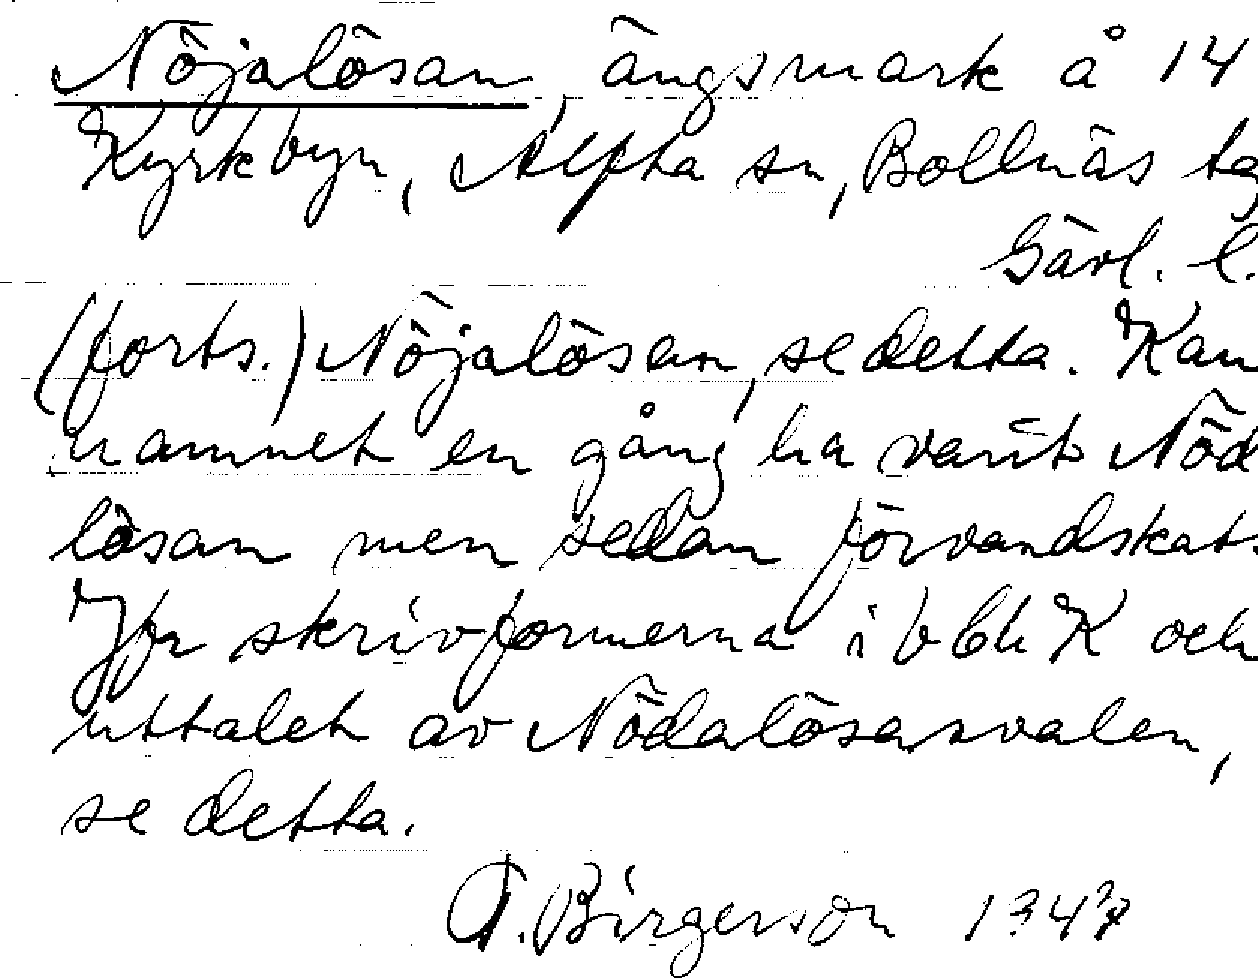 Nöjalösan, ängsmark å 14
Kyrkbyn, Alfta sn, Bollnäs tg
Gävl. l.
(forts.) Nöjalösan, se detta. Kan
namnet en gång ha varit Nöd
lösan men sedan förvandskats
Jfr skrivformerna i bbl K och
uttalet av Nödalösasvalen,
se detta.
T. Birgerson 1947